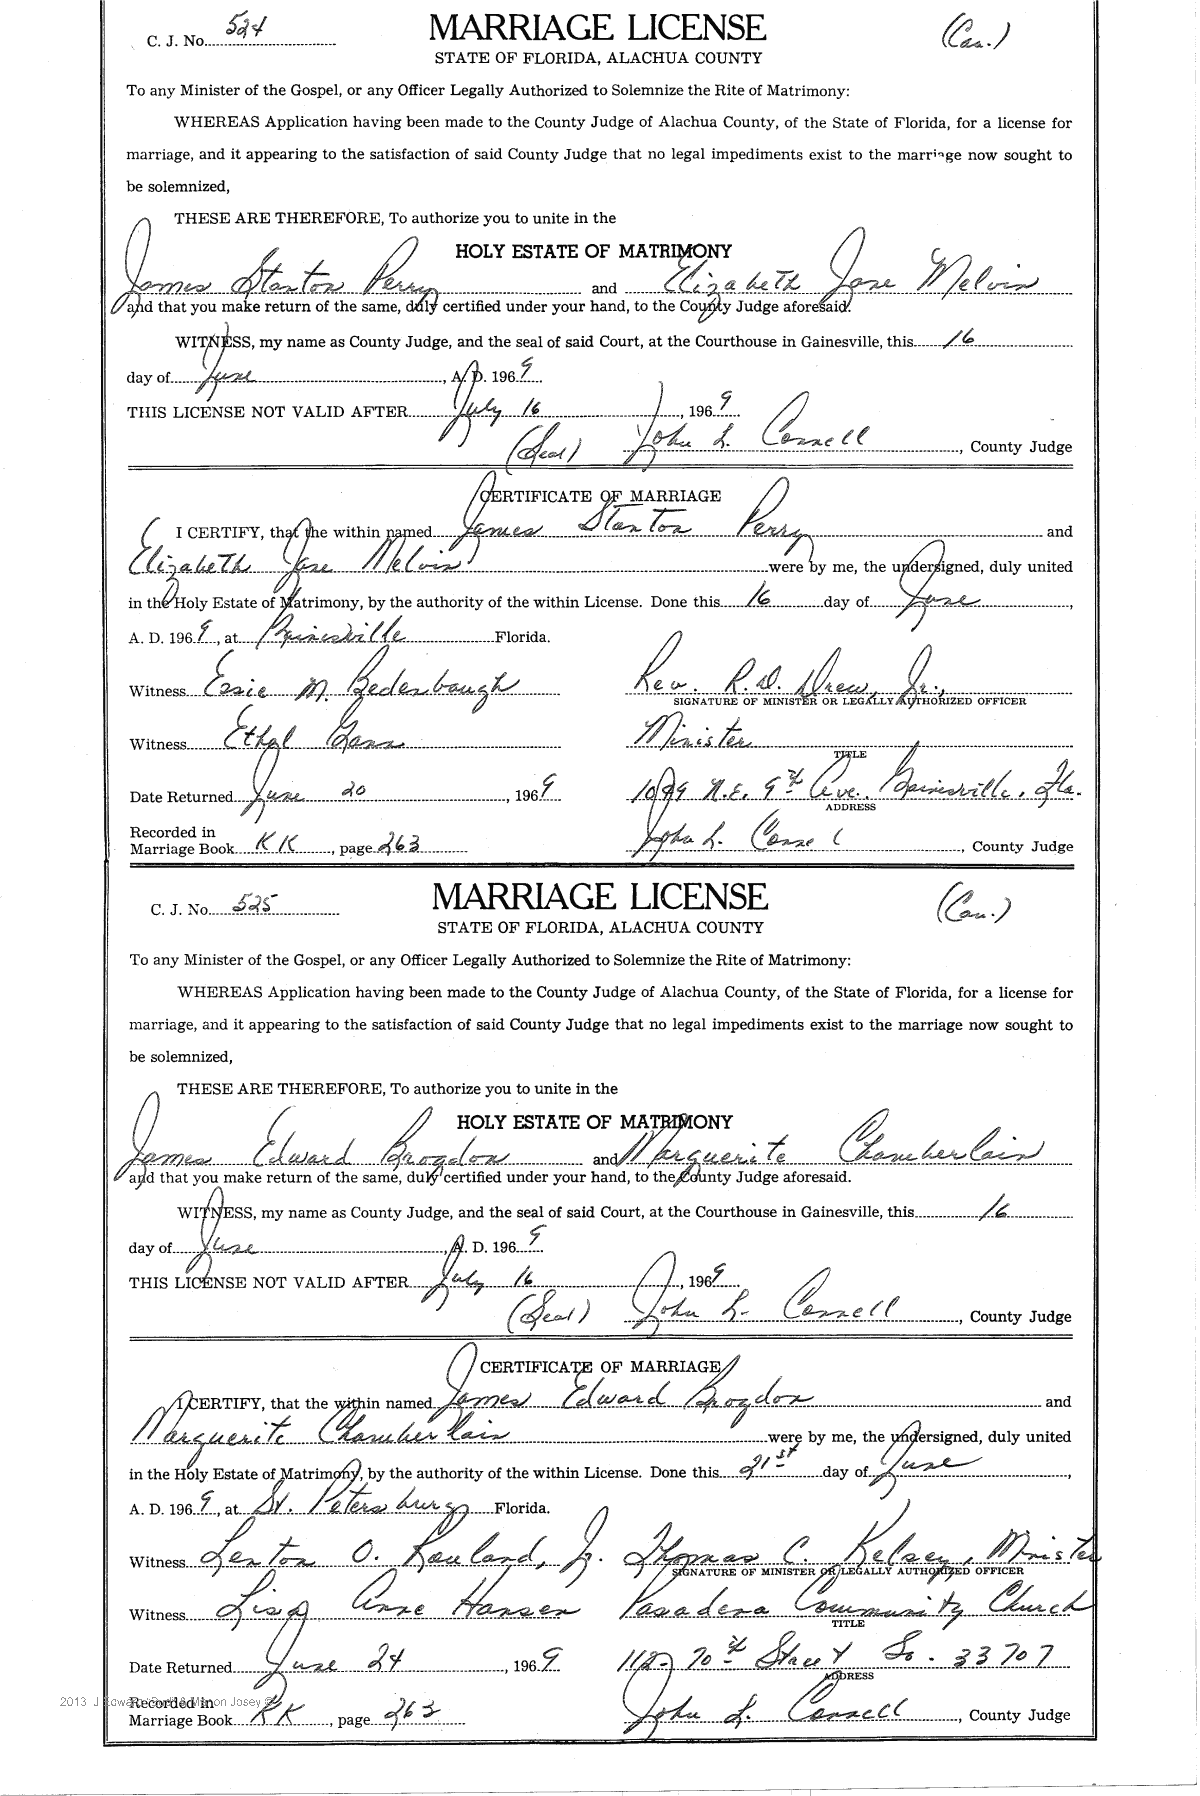 C. J. No. 524 MARRIAGE LICENSE (Cau.)
STATE OF FLORIDA, ALACHUA COUNTY
To any Minister of the Gospel, or any Officer Legally Authorized to Solemnize the Rite of Matrimony:
WHEREAS Application having been made to the County Judge of Alachua County, of the State of Florida, for a license for
marriage, and it appearing to the satisfaction of said County Judge that no legal impediments exist to the marriage now sought to
be solemnized,
THESE ARE THEREFORE, To authorize you to unite in the
HOLY ESTATE OF MATRIMONY
James Stanton Perry and Elizabeth Jane Melvin
and that you make return of the same, duly certified under your hand, to the County Judge aforesaid.
WITNESS, my name as County Judge, and the seal of said Court, at the Courthouse in Gainesville, this 16
day of June, A. D. 1969
THIS LICENSE NOT VALID AFTER July 16, 1969
(Seal) John L. Connell, County Judge
CERTIFICATE OF MARRIAGE
I CERTIFY, that the within named James Stanton Perry and
Elizabeth Jane Melvin were by me, the undersigned, duly united
in the Holy Estate of Matrimony, by the authority of the within License. Done this 16 day of June,
A. D. 1969, at Gainesville Florida.
Witness Essie M. Bedenbaugh Rev. R. D. Drew, Jr.,
SIGNATURE OF MINISTER OR LEGALLY AUTHORIZED OFFICER
Witness Ethel Gann Minister
TITLE
Date Returned June 20, 1969 N.E. 9th Ave. Gainesville, Fla.
ADDRESS
Recorded in
Marriage Book KK, page 263 John L. Connell, County Judge
C. J. No. 525 MARRIAGE LICENSE (Cau.)
STATE OF FLORIDA, ALACHUA COUNTY
To any Minister of the Gospel, or any Officer Legally Authorized to Solemnize the Rite of Matrimony:
WHEREAS Application having been made to the County Judge of Alachua County, of the State of Florida, for a license for
marriage, and it appearing to the satisfaction of said County Judge that no legal impediments exist to the marriage now sought to
be solemnized,
THESE ARE THEREFORE, To authorize you to unite in the
HOLY ESTATE OF MATRIMONY
James Edward Brogdon and Marguerite Chamberlain
and that you make return of the same, duly certified under your hand, to the County Judge aforesaid.
WITNESS, my name as County Judge, and the seal of said Court, at the Courthouse in Gainesville, this 16
day of June, A. D. 1969
THIS LICENSE NOT VALID AFTER July 16, 1969
(Seal) John L. Connell, County Judge
CERTIFICATE OF MARRIAGE
I CERTIFY, that the within named James Edward Brogdon and
Marguerite Chamberlain were by me, the undersigned, duly united
in the Holy Estate of Matrimony, by the authority of the within License. Done this 21st day of June,
A. D. 1969, at St. Petersburg Florida.
Witness Lenton O. Rowland, Jr. Thomas C. Kelsey, Minister
SIGNATURE OF MINISTER OR LEGALLY AUTHORIZED OFFICER
Witness Lisa Anne Hansen Pasadena Community Church
TITLE
Date Returned June 24, 1969 112- 70th Street So. 33707
ADDRESS
2013 Josey ©
Recorded in
Marriage Book KK, page 263 John L. Connell, County Judge